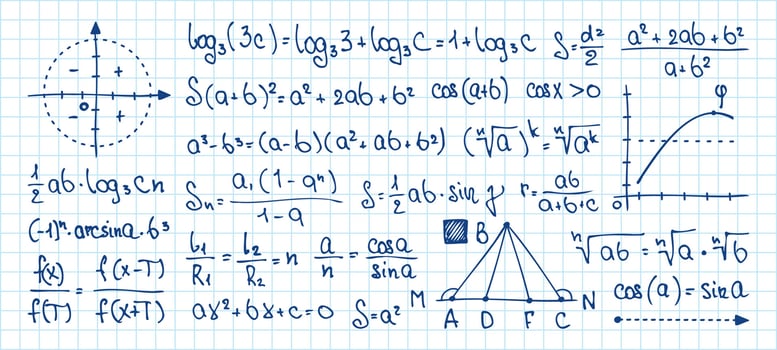 log₃(3c)=log₃3+log₃C=1+log₃C
S=d²/2
(a²+2ab+b²)/(a+b²)
S(a+b)²=a²+2ab+b²
cos(a+b)
cosx>0
- +
0
- +
φ
a³-b³=(a-b)(a²+ab+b²)
(ⁿ√a)ᵏ=ⁿ√aᵏ
½ab·log₃Cn
Sₙ=a₁(1-qⁿ)/(1-q)
S=½ab·sin γ
r=ab/(a+b+c)
0
(-1)ⁿ·arcsina·b³
b₁/R₁=b₂/R₂=n
a/n=cosa/sina
B
ⁿ√ab=ⁿ√a·ⁿ√b
f(x)/f(T)=f(x-T)/f(x+T)
ax²+bx+c=0
S=a²
M N
A D F C
cos(a)=sina